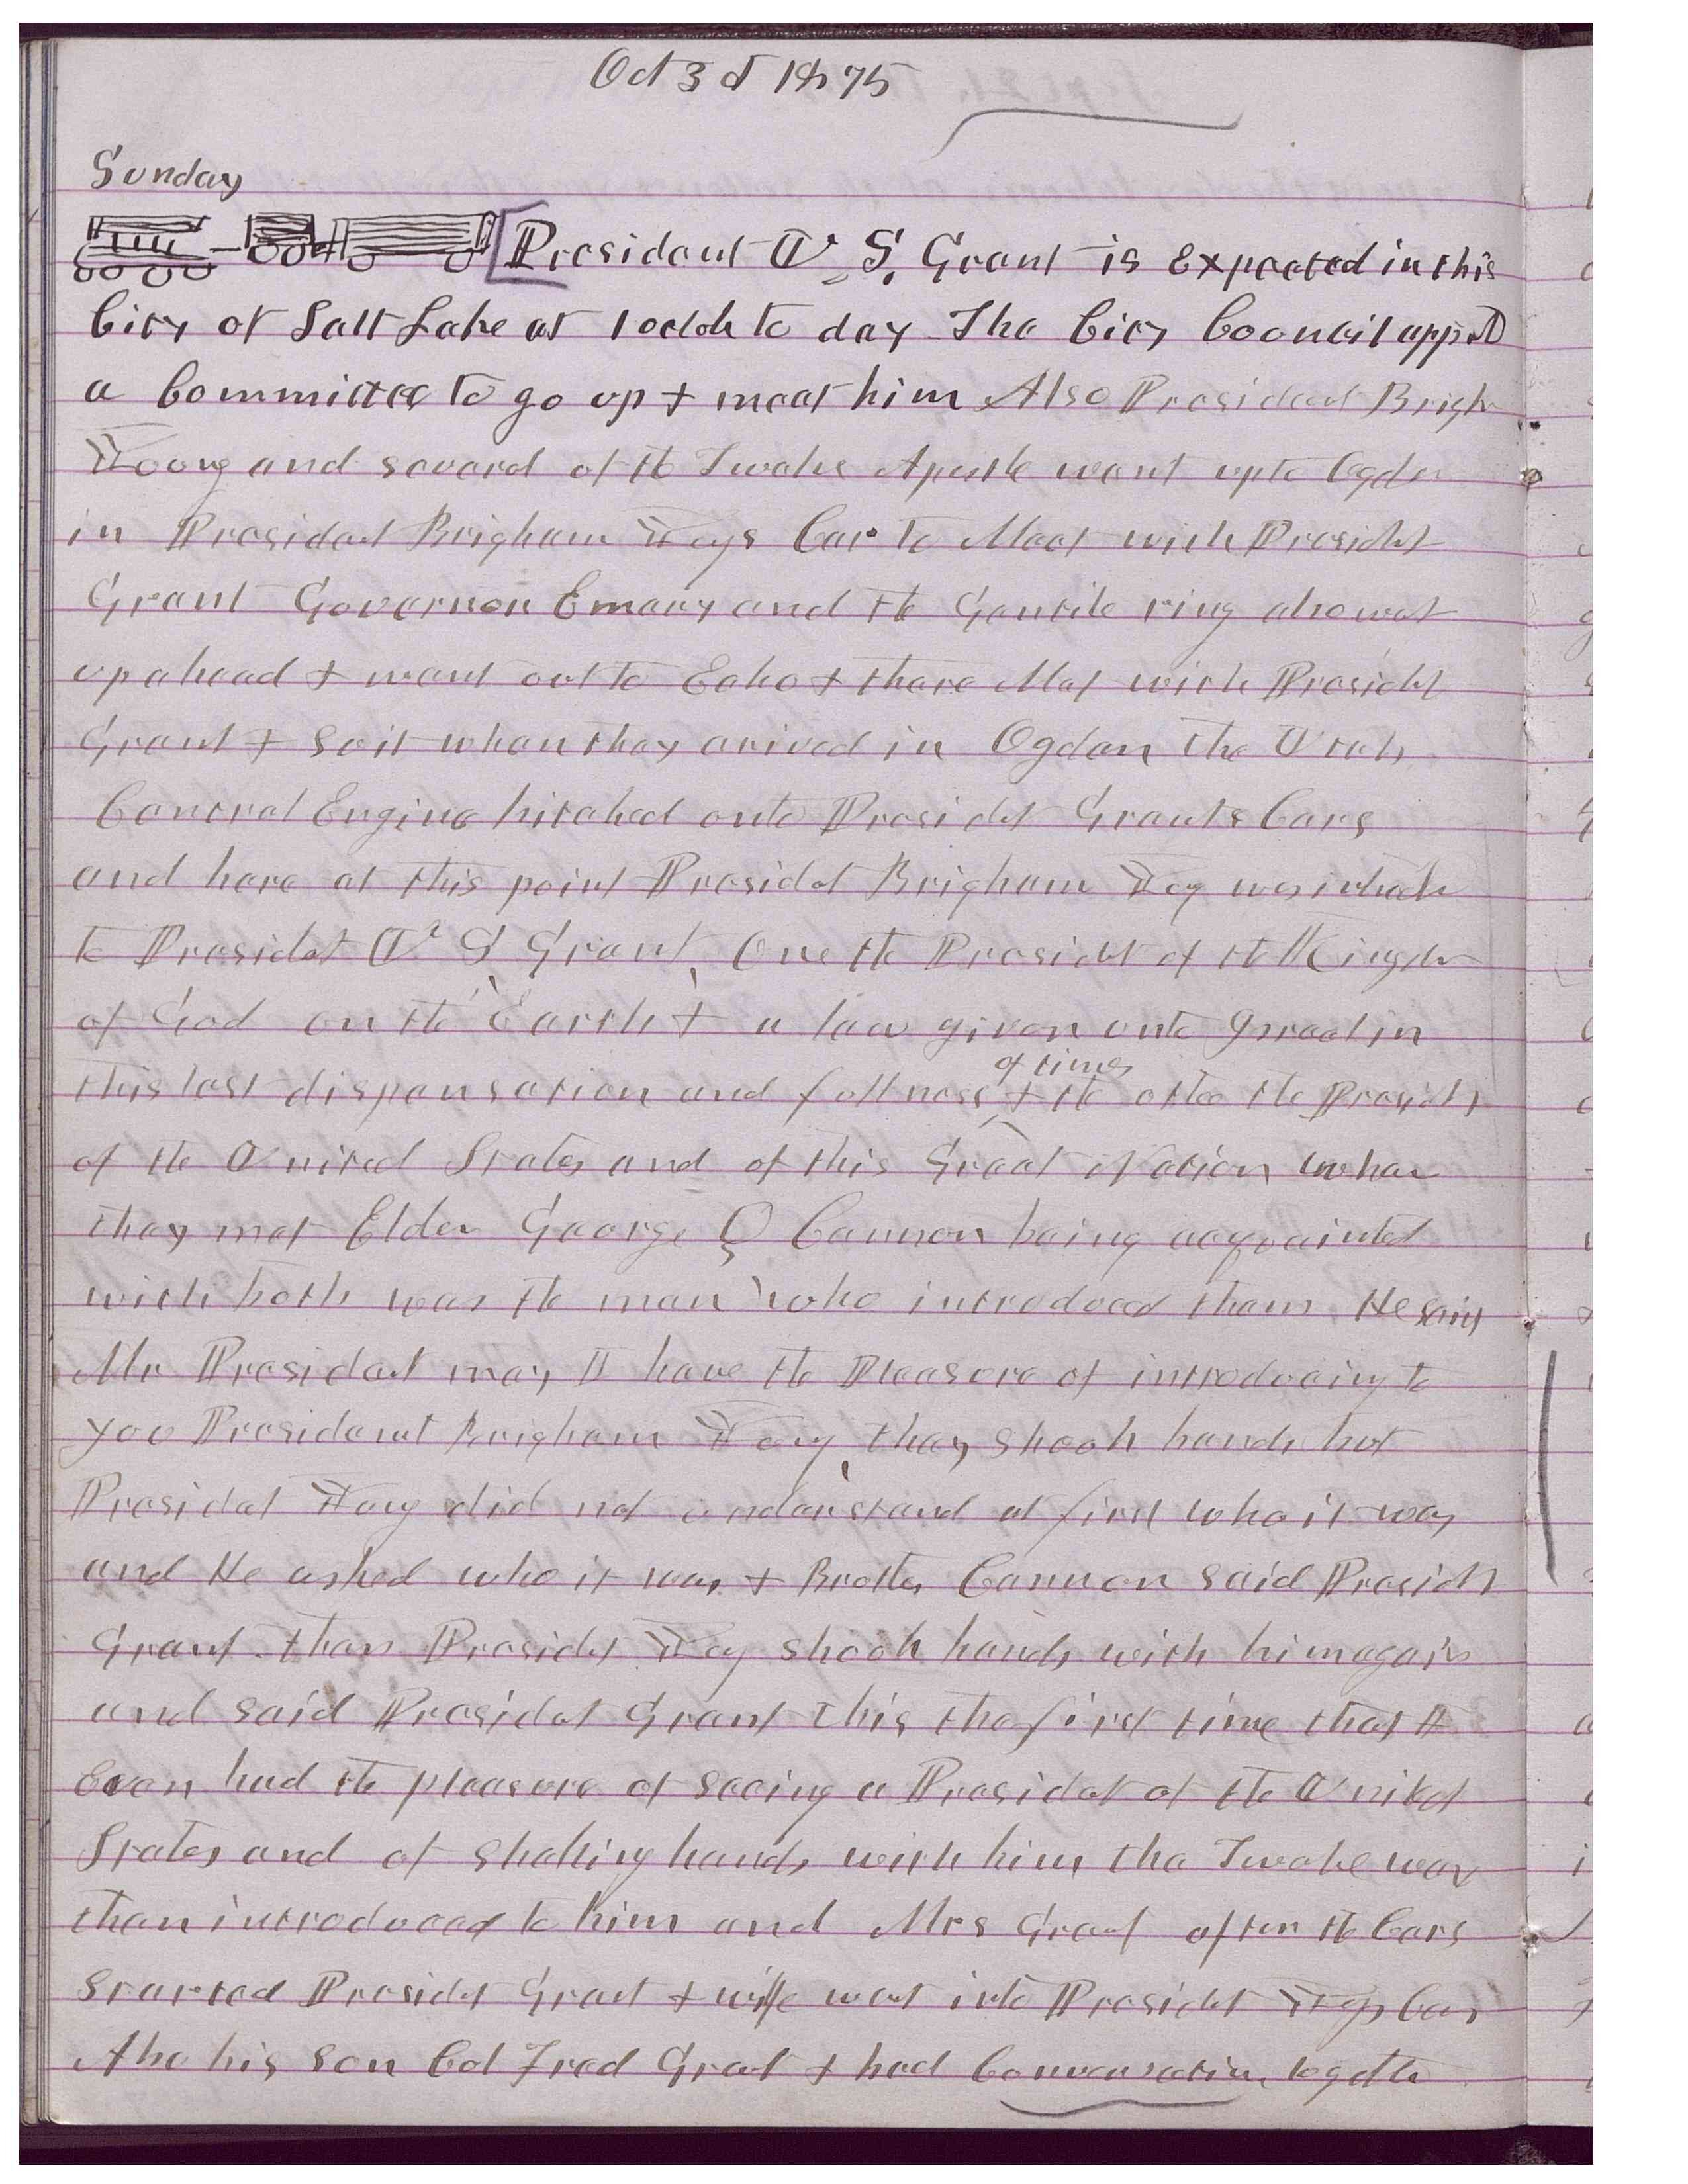 Oct 3d 1875
Sunday
President U. S. Grant is Expected in this
City of Salt Lake at 1 oclok to day The City Council appt
a Committee to go up & meet him Also President Brigh
Young and several of the Twelve Apostle went up to Ogden
in President Brigham Yongs Car to Meet with President
Grant Governor Emery and the Gentile ring also went
up ahead & went out to Echo & there Met with Presidet
Grant & suit when they arived in Ogden the Utah
Central Engine hitched onto President Grants Cars
and here at this point President Brigham Yong was introdu
to President U. S Grant, One the President of the Kingdom
of God on the Earth & a law given unto Israel in
this last dispensation and fullness of times & the other the President
of the United States and of this Great Nation when
they met Elder George Q Cannon being acquainted
with both was the man who introduced them, He said
Mr President may I have the Pleasure of introducing to
you President Brigham Yong, they shook hands but
President Yong did not understand at first who it was
and He asked who it was & Brother Cannon said President
Grant. then President Yong shook hands with him again
and said President Grant this the first time that I
Ever had the pleasure of seeing a President of the United
States and of Shaking hands with him the Twelve wer
then introduced to him and Mrs Grant after the Cars
started President Grant & wife went into President Yongs Car
Also his son Col Fred Grant & had Conversation together